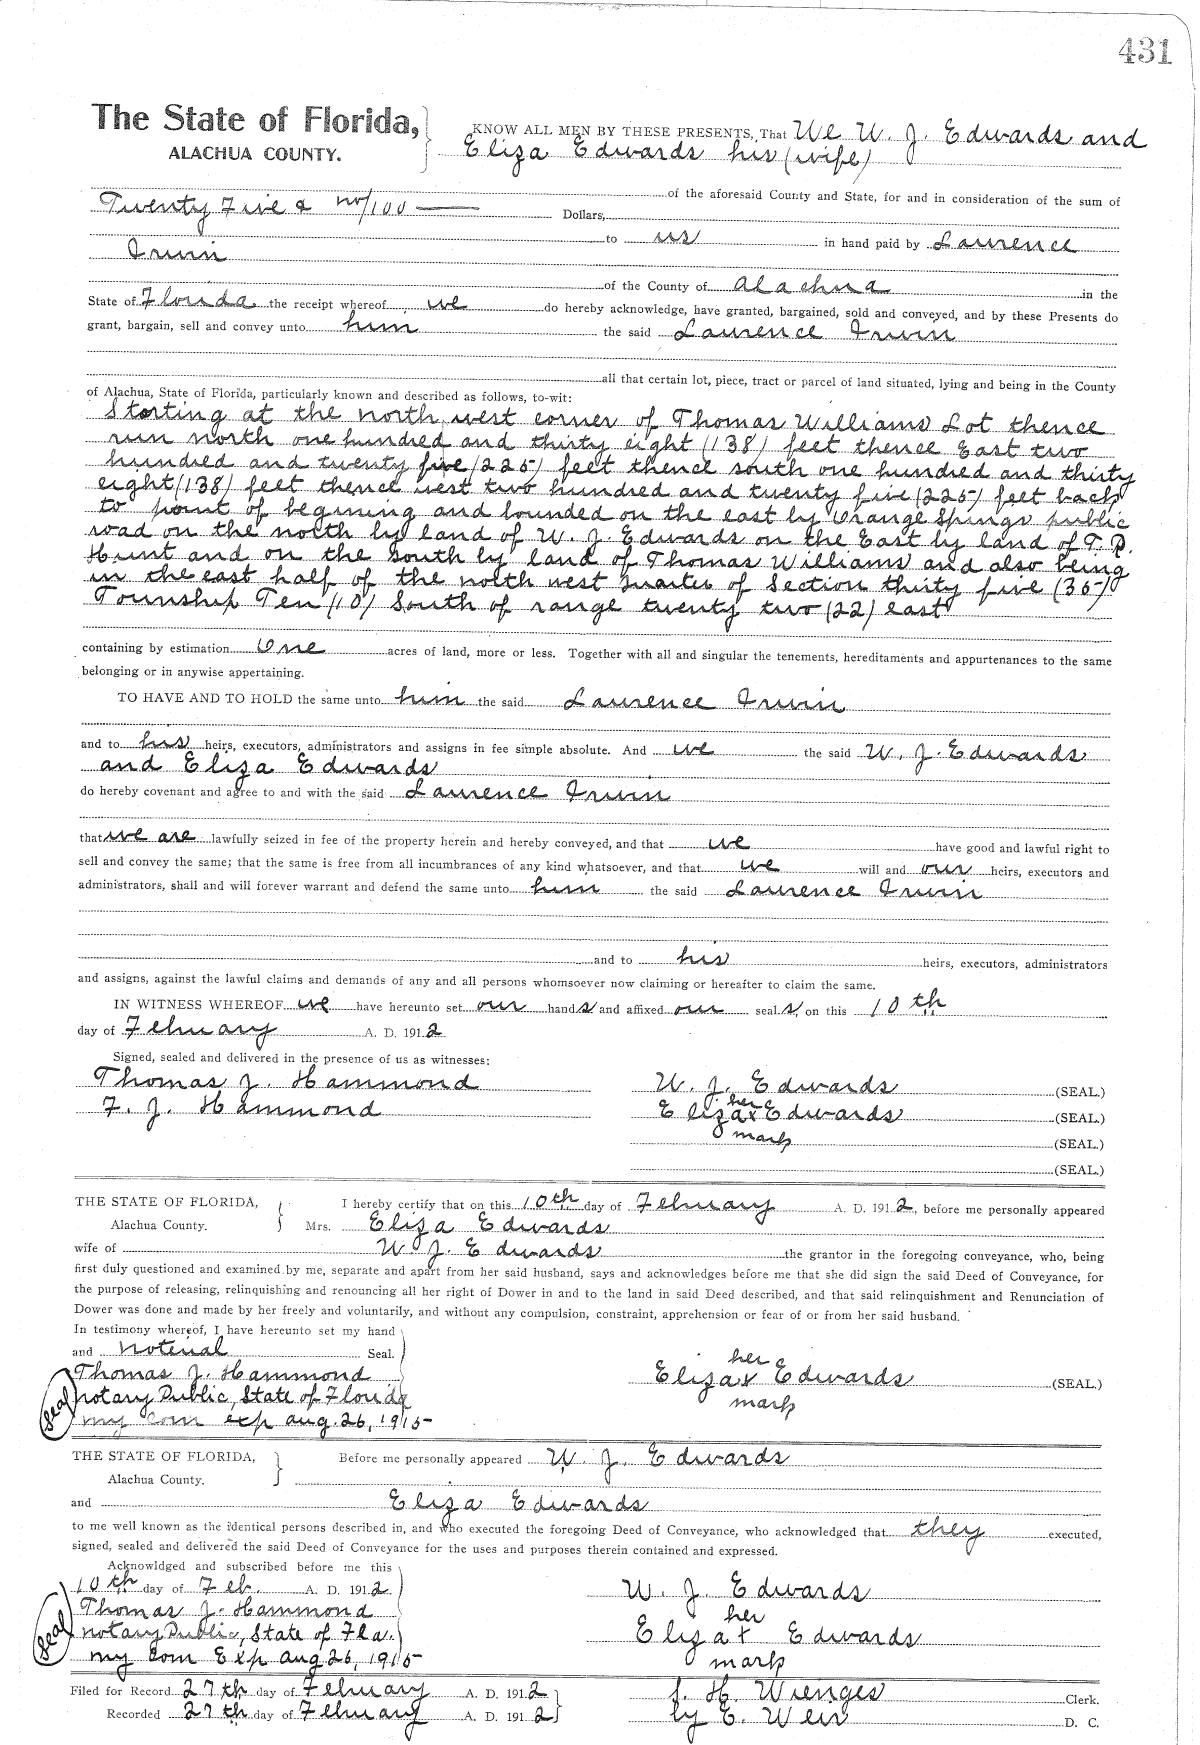 431
The State of Florida,
ALACHUA COUNTY.
KNOW ALL MEN BY THESE PRESENTS, That We W. J. Edwards and
Eliza Edwards his (wife)
of the aforesaid County and State, for and in consideration of the sum of
Twenty Five & no/100 Dollars,
to us in hand paid by Laurence
Irwin
of the County of Alachua in the
State of Florida the receipt whereof we do hereby acknowledge, have granted, bargained, sold and conveyed, and by these Presents do
grant, bargain, sell and convey unto him the said Laurence Irwin
all that certain lot, piece, tract or parcel of land situated, lying and being in the County
of Alachua, State of Florida, particularly known and described as follows, to-wit:
Storting at the north west corner of Thomas Williams Lot thence
run north one hundred and thirty eight (138) feet thence East two
hundred and twenty five (225) feet thence south one hundred and thirty
eight (138) feet thence west two hundred and twenty five (225) feet back
to point of begining and bounded on the east by Orange Springs public
road on the north by land of W. J. Edwards on the East by land of T. P.
Hunt and on the South by land of Thomas Williams and also being
in the east half of the north west quarter of Section thirty five (35)
Township Ten (10) South of range twenty two (22) east
containing by estimation One acres of land, more or less. Together with all and singular the tenements, hereditaments and appurtenances to the same
belonging or in anywise appertaining.
TO HAVE AND TO HOLD the same unto him the said Laurence Irwin
and to his heirs, executors, administrators and assigns in fee simple absolute. And we the said W. J. Edwards
and Eliza Edwards
do hereby covenant and agree to and with the said Laurence Irwin
that we are lawfully seized in fee of the property herein and hereby conveyed, and that we have good and lawful right to
sell and convey the same; that the same is free from all incumbrances of any kind whatsoever, and that we will and our heirs, executors and
administrators, shall and will forever warrant and defend the same unto him the said Laurence Irwin
and to his heirs, executors, administrators
and assigns, against the lawful claims and demands of any and all persons whomsoever now claiming or hereafter to claim the same.
IN WITNESS WHEREOF we have hereunto set our hands and affixed our seal s, on this 10th
day of February A. D. 1912
Signed, sealed and delivered in the presence of us as witnesses:
Thomas J. Hammond W. J. Edwards (SEAL.)
her
F. J. Hammond Eliza x Edwards (SEAL.)
mark (SEAL.)
(SEAL.)
THE STATE OF FLORIDA, I hereby certify that on this 10th day of February A. D. 1912, before me personally appeared
Alachua County. Mrs. Eliza Edwards
wife of W. J. Edwards the grantor in the foregoing conveyance, who, being
first duly questioned and examined by me, separate and apart from her said husband, says and acknowledges before me that she did sign the said Deed of Conveyance, for
the purpose of releasing, relinquishing and renouncing all her right of Dower in and to the land in said Deed described, and that said relinquishment and Renunciation of
Dower was done and made by her freely and voluntarily, and without any compulsion, constraint, apprehension or fear of or from her said husband.
In testimony whereof, I have hereunto set my hand
and noterial Seal.
her
Thomas J. Hammond Eliza x Edwards (SEAL.)
mark
(seal) notary Public, State of Florida
my com exp aug. 26, 1915
THE STATE OF FLORIDA, Before me personally appeared W. J. Edwards
Alachua County.
and Eliza Edwards
to me well known as the identical persons described in, and who executed the foregoing Deed of Conveyance, who acknowledged that they executed,
signed, sealed and delivered the said Deed of Conveyance for the uses and purposes therein contained and expressed.
Acknowldged and subscribed before me this
10th day of Feb. A. D. 1912 W. J. Edwards
Thomas J. Hammond her
(seal) notary Public, State of Fla. Eliza x Edwards
my Com Exp aug 26, 1915 mark
Filed for Record 27th day of February A. D. 1912 S. H. Wienges Clerk.
Recorded 27th day of February A. D. 1912 by E. Weir D. C.